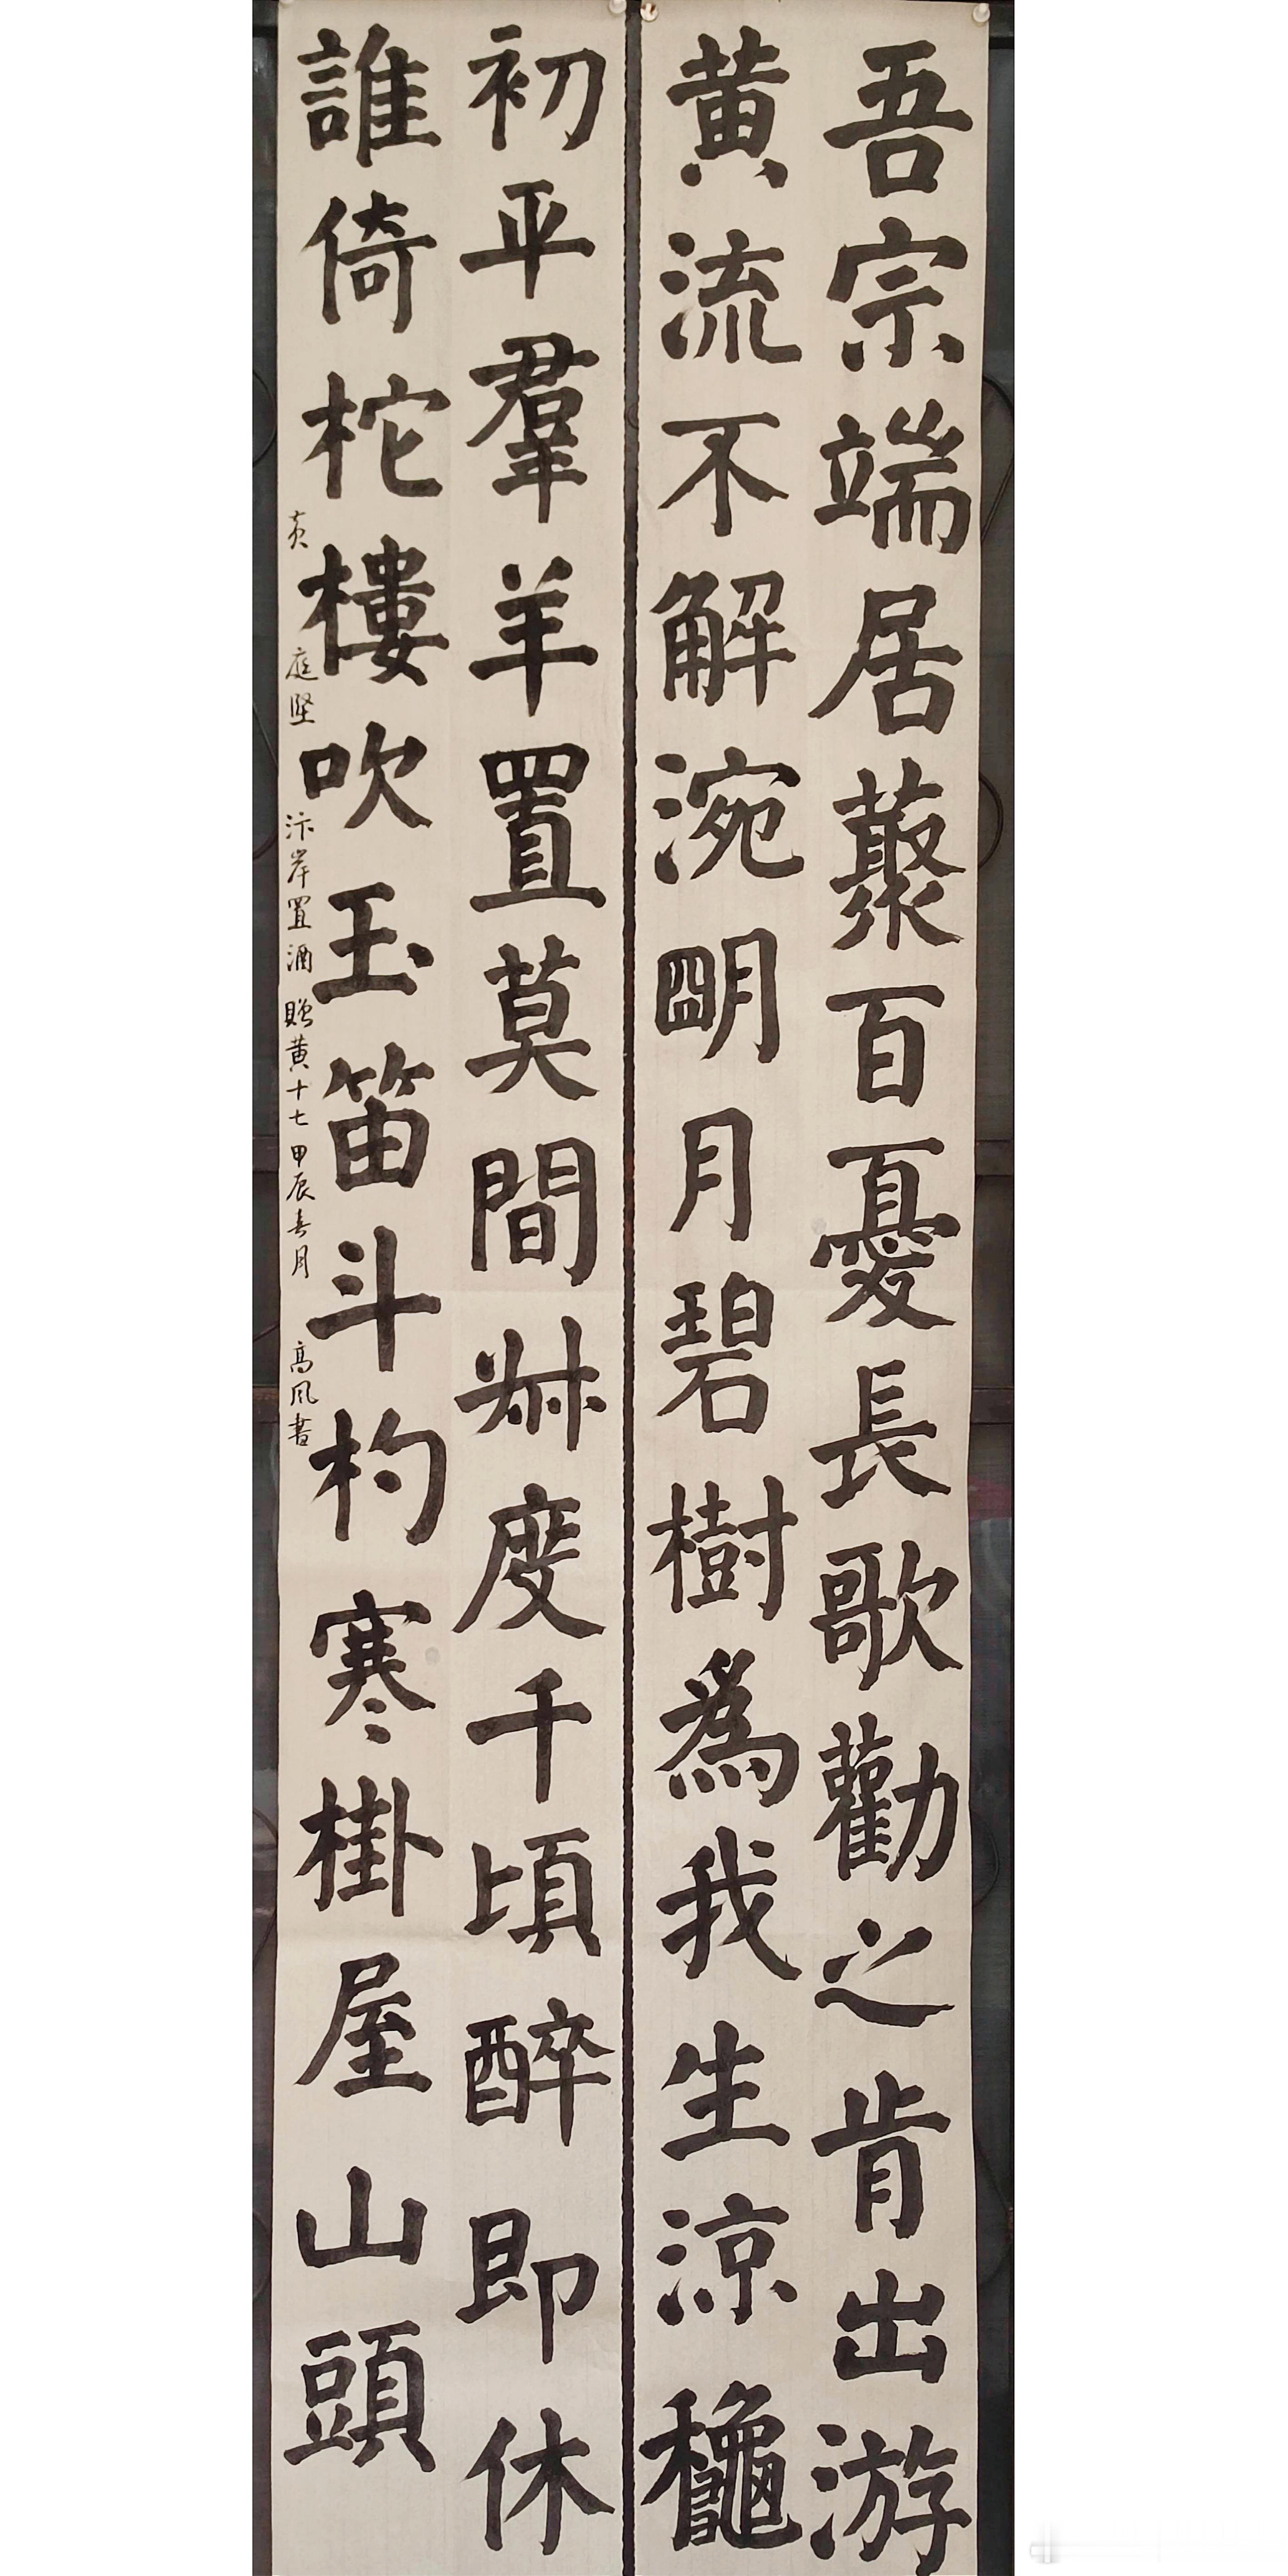 吾宗端居藂百憂長歌勸之肯出游
黄流不解涴朙月碧樹為我生涼龝
初平羣羊置莫間叔度千頃醉即休
誰倚柁樓吹玉笛斗杓寒掛屋山頭
黄庭坚 汴岸置酒贈黄十七 甲辰春月 高风書